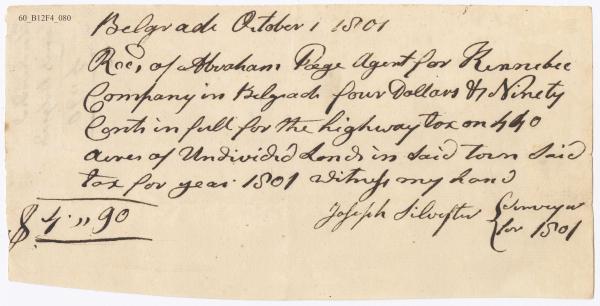 60_B12F4_080
Belgrade October 1 1801
Recd of Abraham Page Agent for Kennebec
Company in Belgrade four Dollars & Ninety
Cents in full for the highway tax on 440
acres of Undivided Lands in said town said
tax for year 1801 witness my hand
$ 4"90
Joseph Silvester Surveyor
for 1801